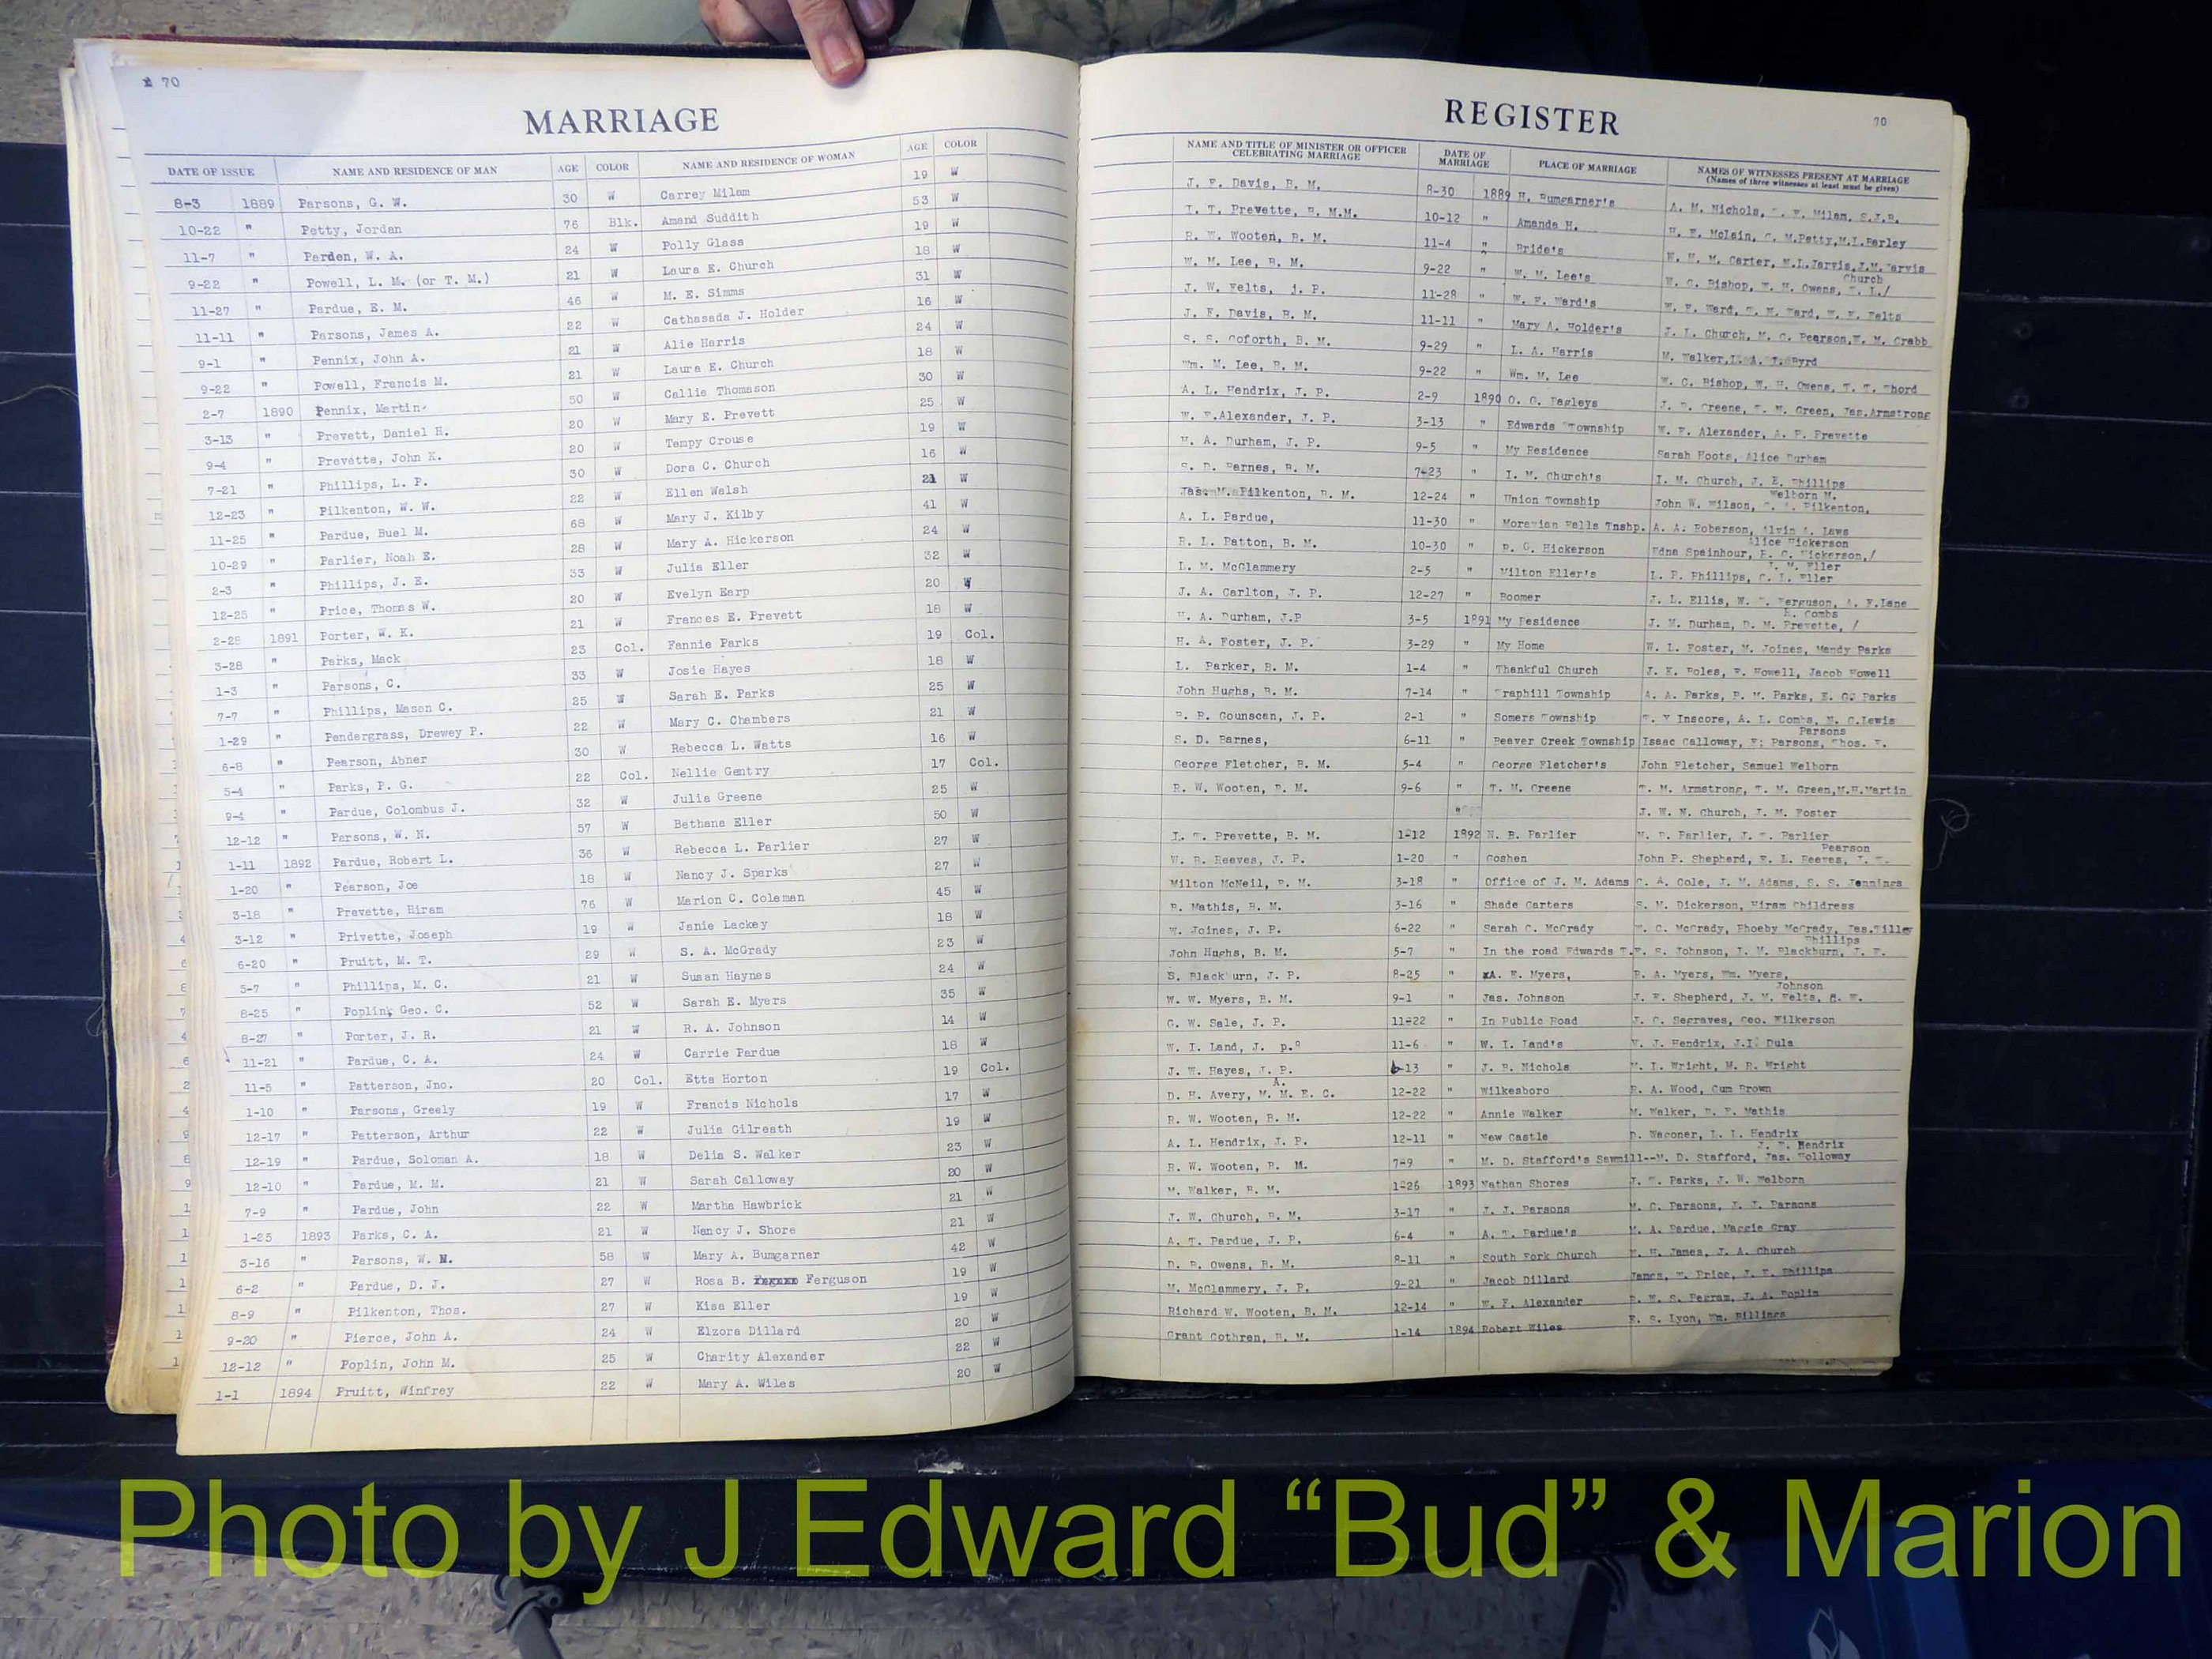 70
MARRIAGE
DATE OF ISSUE NAME AND RESIDENCE OF MAN AGE COLOR NAME AND RESIDENCE OF WOMAN AGE COLOR
8-3 1889 Parsons, G. W. 30 W Carrey Milam 19 W
10-22 " Petty, Jordan 76 Blk. Amand Suddith 53 W
11-7 " Parden, W. A. 24 W Polly Glass 19 W
9-22 " Powell, L. M. (or T. M.) 21 W Laura E. Church 18 W
11-27 " Pardue, E. M. 46 W M. E. Simms 31 W
11-11 " Parsons, James A. 22 W Cathasada J. Holder 16 W
9-1 " Pennix, John A. 21 W Alie Harris 24 W
9-22 " Powell, Francis M. 21 W Laura E. Church 18 W
2-7 1890 Pennix, Martin 50 W Callie Thomason 30 W
3-13 " Prevett, Daniel H. 20 W Mary E. Prevett 25 W
9-4 " Prevette, John K. 20 W Tempy Crouse 19 W
7-21 " Phillips, L. P. 30 W Dora C. Church 16 W
12-23 " Pilkenton, W. W. 22 W Ellen Walsh 21 W
11-25 " Pardue, Buel M. 68 W Mary J. Kilby 41 W
10-29 " Parlier, Noah E. 28 W Mary A. Hickerson 24 W
2-3 " Phillips, J. E. 33 W Julia Eller 32 W
12-25 " Price, Thomas W. 20 W Evelyn Earp 20 W
2-28 1891 Porter, W. K. 21 W Frances E. Prevett 18 W
3-28 " Parks, Mack 23 Col. Fannie Parks 19 Col.
1-3 " Parsons, C. 33 W Josie Hayes 18 W
7-7 " Phillips, Mason C. 25 W Sarah E. Parks 25 W
1-29 " Pendergrass, Drewey P. 22 W Mary C. Chambers 21 W
6-8 " Pearson, Abner 30 W Rebecca L. Watts 16 W
5-4 " Parks, P. G. 22 Col. Nellie Gentry 17 Col.
9-4 " Pardue, Colombus J. 32 W Julia Greene 25 W
12-12 " Parsons, W. N. 57 W Bethana Eller 50 W
1-11 1892 Pardue, Robert L. 36 W Rebecca L. Parlier 27 W
1-20 " Pearson, Joe 18 W Nancy J. Sparks 27 W
3-18 " Prevette, Hiram 76 W Marion C. Coleman 45 W
3-12 " Privette, Joseph 19 W Janie Lackey 18 W
6-20 " Pruitt, M. T. 29 W S. A. McGrady 23 W
5-7 " Phillips, M. C. 21 W Susan Haynes 24 W
8-25 " Poplin, Geo. C. 52 W Sarah E. Myers 35 W
8-27 " Porter, J. R. 21 W R. A. Johnson 14 W
11-21 " Pardue, C. A. 24 W Carrie Pardue 18 W
11-5 " Patterson, Jno. 20 Col. Etta Horton 19 Col.
1-10 " Parsons, Greely 19 W Francis Nichols 17 W
12-17 " Patterson, Arthur 22 W Julia Gilreath 19 W
12-19 " Pardue, Soloman A. 18 W Delia S. Walker 23 W
12-10 " Pardue, M. M. 21 W Sarah Calloway 20 W
7-9 " Pardue, John 22 W Martha Hawbrick 21 W
1-25 1893 Parks, C. A. 21 W Nancy J. Shore 21 W
3-16 " Parsons, W. N. 58 W Mary A. Bumgarner 42 W
6-2 " Pardue, D. J. 27 W Rosa B. Ferguson 19 W
8-9 " Pilkenton, Thos. 27 W Kisa Eller 19 W
9-20 " Pierce, John A. 24 W Elzora Dillard 20 W
12-12 " Poplin, John M. 25 W Charity Alexander 22 W
1-1 1894 Pruitt, Winfrey 22 W Mary A. Wiles 20 W
REGISTER
70
NAME AND TITLE OF MINISTER OR OFFICER CELEBRATING MARRIAGE DATE OF MARRIAGE PLACE OF MARRIAGE NAMES OF WITNESSES PRESENT AT MARRIAGE
(Names of three witnesses at least must be given)
J. F. Davis, B. M. 8-30 1889 H. Bumgarner's A. M. Nichols, Milam,
I. T. Prevette, B. M.M. 10-12 " Amanda H. H. E. McLain, C. M.Petty,M.L.Parley
R. W. Wooten, B. M. 11-4 " Bride's W. H. M. Carter, M.L.Jarvis,J.M.Jarvis
W. M. Lee, B. M. 9-22 " W. M. Lee's W. C. Bishop, W. H. Owens, T. L./ Church
J. W. Felts, j. P. 11-28 " W. F. Ward's W. F. Ward, Ward, W. E. Felts
J. F. Davis, B. M. 11-11 " Mary A. Holder's J. L. Church, M. C. Pearson,W. M. Crabb
S. S. Goforth, B. M. 9-29 " L. A. Harris M. Walker,L. A. J. Byrd
Wm. M. Lee, B. M. 9-22 " Wm. M. Lee W. C. Bishop, W. H. Owens, T. T. Chord
A. L. Hendrix, J. P. 2-9 1890 O. G. Bagleys J. Greene, T. M. Green, Jas.Armstrong
W. F.Alexander, J. P. 3-13 " Edwards Township W. F. Alexander, A. P. Prevette
H. A. Durham, J. P. 9-5 " My Residence Sarah Hoots, Alice Durham
S. D. Barnes, B. M. 7-23 " I. M. Church's I. M. Church, J. E. Phillips
Jas. M. Pilkenton, B. M. 12-24 " Union Township John W. Wilson, Pilkenton, Welborn M.
A. L. Pardue, 11-30 " Moravian Falls Tnshp. A. A. Roberson, Alvin A. Laws
R. L. Patton, B. M. 10-30 " R. G. Hickerson Edna Spainhour, R. C. Hickerson,/ Alice Hickerson
L. M. McGlammery 2-5 " Milton Eller's L. P. Phillips, C. L. Eller J. M. Eller
J. A. Carlton, J. P. 12-27 " Boomer J. L. Ellis, W. Ferguson, A. F.Lane
H. A. Durham, J.P 3-5 1891 My Residence J. M. Durham, D. M. Prevette, / R. Combs
H. A. Foster, J. P. 3-29 " My Home W. L. Foster, M. Joines, Mandy Parks
L. Parker, B. M. 1-4 " Thankful Church J. E. Poles, F. Howell, Jacob Howell
John Hughs, B. M. 7-14 " Traphill Township A. A. Parks, R. M. Parks, E. G. Parks
R. R. Gounscan, J. P. 2-1 " Somers Township Inscore, A. L. Combs, N. C.Lewis
S. D. Barnes, 6-11 " Beaver Creek Township Isaac Calloway, F; Parsons, Thos. F. Parsons
George Fletcher, B. M. 5-4 " George Fletcher's John Fletcher, Samuel Welborn
R. W. Wooten, B. M. 9-6 " T. M. Greene T. M. Armstrong, T. M. Green,M.H.Martin
" J. W. N. Church, J. M. Foster
I. T. Prevette, B. M. 1-12 1892 N. B. Parlier N. B. Parlier, J. Parlier
W. B. Reeves, J. P. 1-20 " Goshen John P. Shepherd, R. L. Reeves, Pearson
Milton McNeil, B. M. 3-18 " Office of J. M. Adams C. A. Cole, J. M. Adams, S. S. Jennings
R. Mathis, B. M. 3-16 " Shade Carters S. M. Dickerson, Hiram Childress
W. Joines, J. P. 6-22 " Sarah C. McGrady W. C. McGrady, Phoeby McGrady, Jas.Tilley
John Hughs, B. M. 5-7 " In the road Edwards T. F. S. Johnson, J. M. Blackburn, J. F. Phillips
S. Blackburn, J. P. 8-25 " A. E. Myers, R. A. Myers, Wm. Myers,
W. W. Myers, B. M. 9-1 " Jas. Johnson J. F. Shepherd, J. M. Felts, Johnson
G. W. Sale, J. P. 11-22 " In Public Road J. C. Segraves, Geo. Wilkerson
W. I. Land, J. p. 11-6 " W. I. Land's W. J. Hendrix, J.I. Dula
J. W. Hayes, J. P. 6-13 " J. B. Nichols M. I. Wright, M. R. Wright
D. H. Avery, M. A. M. E. C. 12-22 " Wilkesboro R. A. Wood, Cum Brown
R. W. Wooten, B. M. 12-22 " Annie Walker M. Walker, R. F. Mathis
A. L. Hendrix, J. P. 12-11 " New Castle D. Wagoner, L. L. Hendrix
R. W. Wooten, B. M. 7-9 " M. D. Stafford's Sawmill--M. D. Stafford, Jas. Holloway J. E. Hendrix
M. Walker, B. M. 1-26 1893 Nathan Shores J. T. Parks, J. W. Welborn
J. W. Church, B. M. 3-17 " J. J. Parsons M. C. Parsons, J. J. Parsons
A. T. Pardue, J. P. 6-4 " A. T. Pardue's M. A. Pardue, Maggie Gray
D. R. Owens, B. M. 8-11 " South Fork Church W. H. James, J. A. Church
M. McGlammery, J. P. 9-21 " Jacob Dillard James, W. Price, J. F. Phillips
Richard W. Wooten, B. M. 12-14 " W. F. Alexander R. W. S. Pegram, J. A. Poplin
Grant Cothren, B. M. 1-14 1894 Robert Wiles F. S. Lyon, Wm. Billings
Photo by J Edward “Bud” & Marion